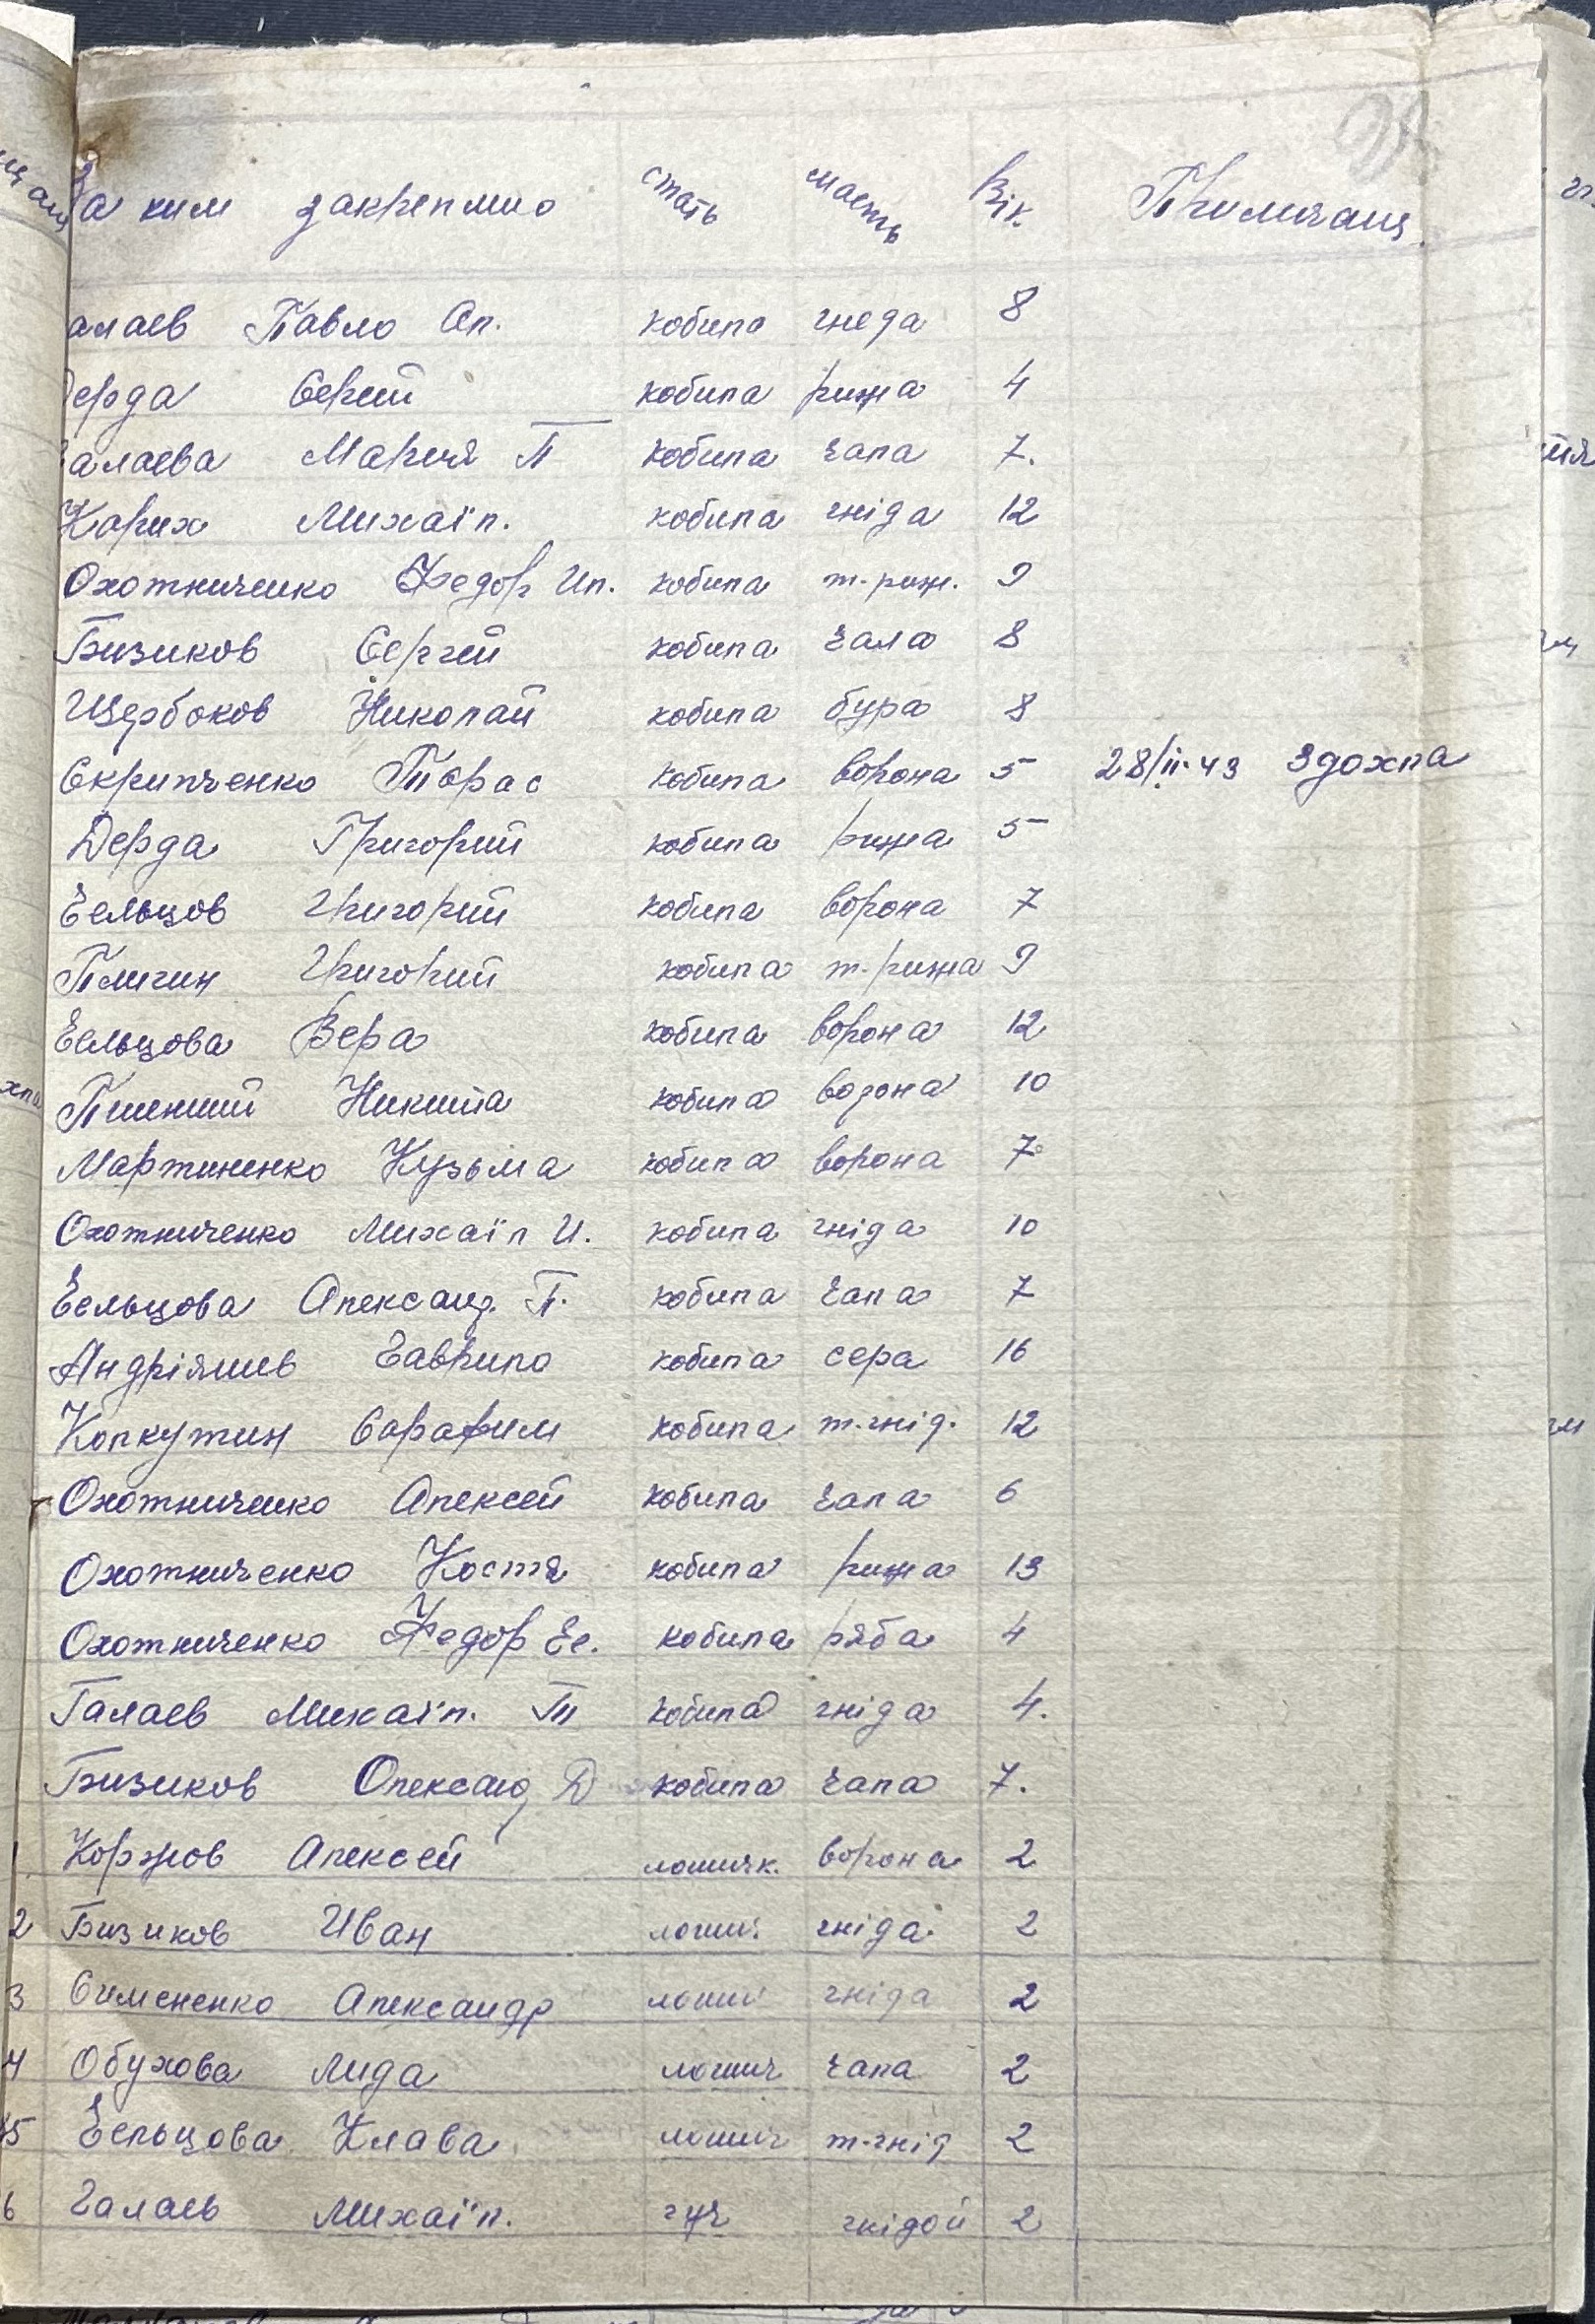 За ким закреплино стать масть Вік. Примічан
алаев Павло Ол. кобила гнеда 8
Дерда Сергій кобила рижа 4
алаева Мария П кобила чала 7.
Карих Михаіл. кобила гніда 12
Охотниченко Федор Ил. кобила т-риж. 9
Бизиков Сергей кобила чала 8
Щербоков Николай кобила бура 8
Скрипченко Тарас кобила ворона 5 28/II-43 Здохла
Дерда Григорий кобила рижа 5
Ельцов Григорий кобила ворона 7
Плигин Григорий кобила т-рижа 9
Ельцова Вера кобила ворона 12
Пшений Никита кобила ворона 10
Мартиненко Кузьма кобила ворона 7
Охотниченко Михаіл И. кобила гніда 10
Ельцова Александ. П. кобила чала 7
Андріяшев Гаврило кобила сера 16
Колкутин Сарафим кобила т-гнід. 12
Охотниченко Алексей кобила чала 6
Охотниченко Костя кобила рижа 13
Охотниченко Федор Ег. кобила ряба 4
Галаев Михаіл. П кобила гніда 4.
Бизиков Олександ Д кобила чала 7.
1 Коржов Алексей лошичк. ворона 2
2 Бизиков Иван лошич. гніда 2
3 Симененко Александр лошич гніда 2
4 Обухова Лида лошич чала 2
5 Ельцова Клава лошич т-гнід 2
6 Галаев Михаіл. гніdой 2